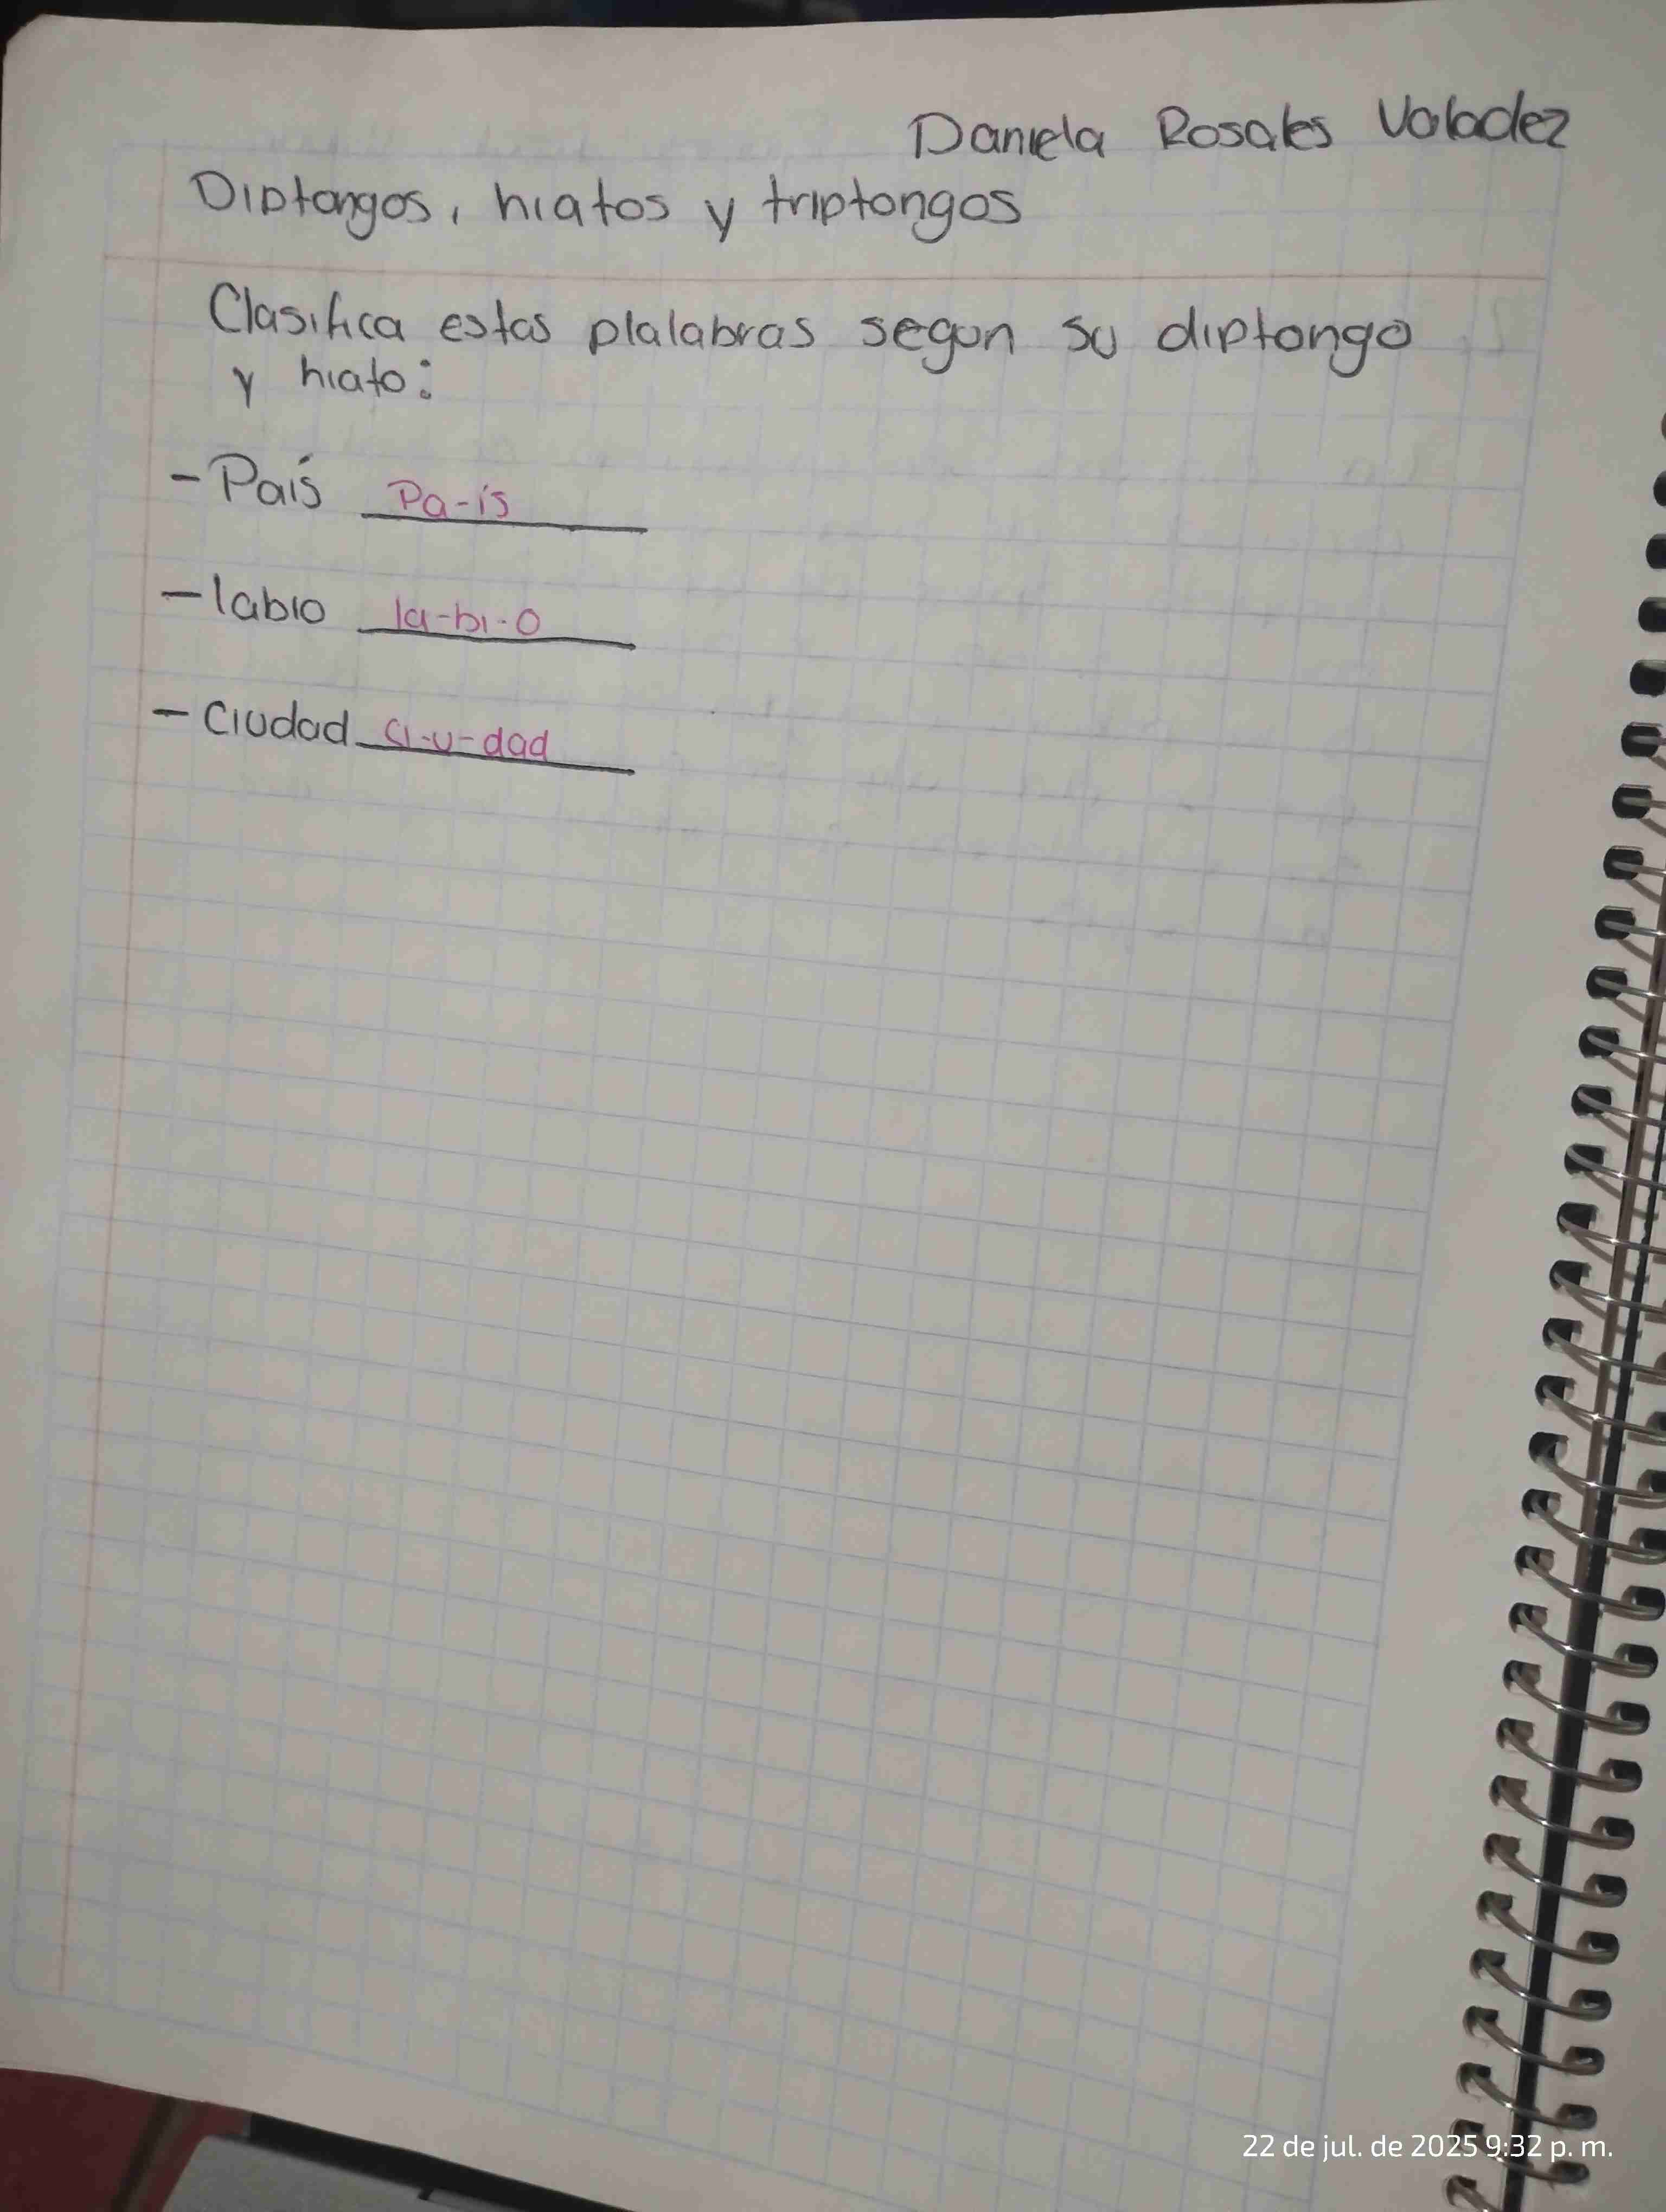 Daniela Rosales Valadez
Diptongos, hiatos y triptongos
Clasifica estas plalabras segun su diptongo
y hiato:
- País Pa-ís
- labio la-bi-o
- Ciudad Ci-u-dad
22 de jul. de 2025 9:32 p. m.